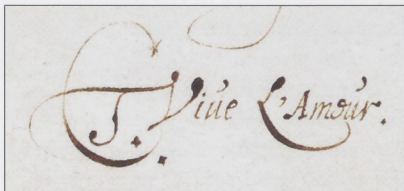 J. Viue L'Amour.